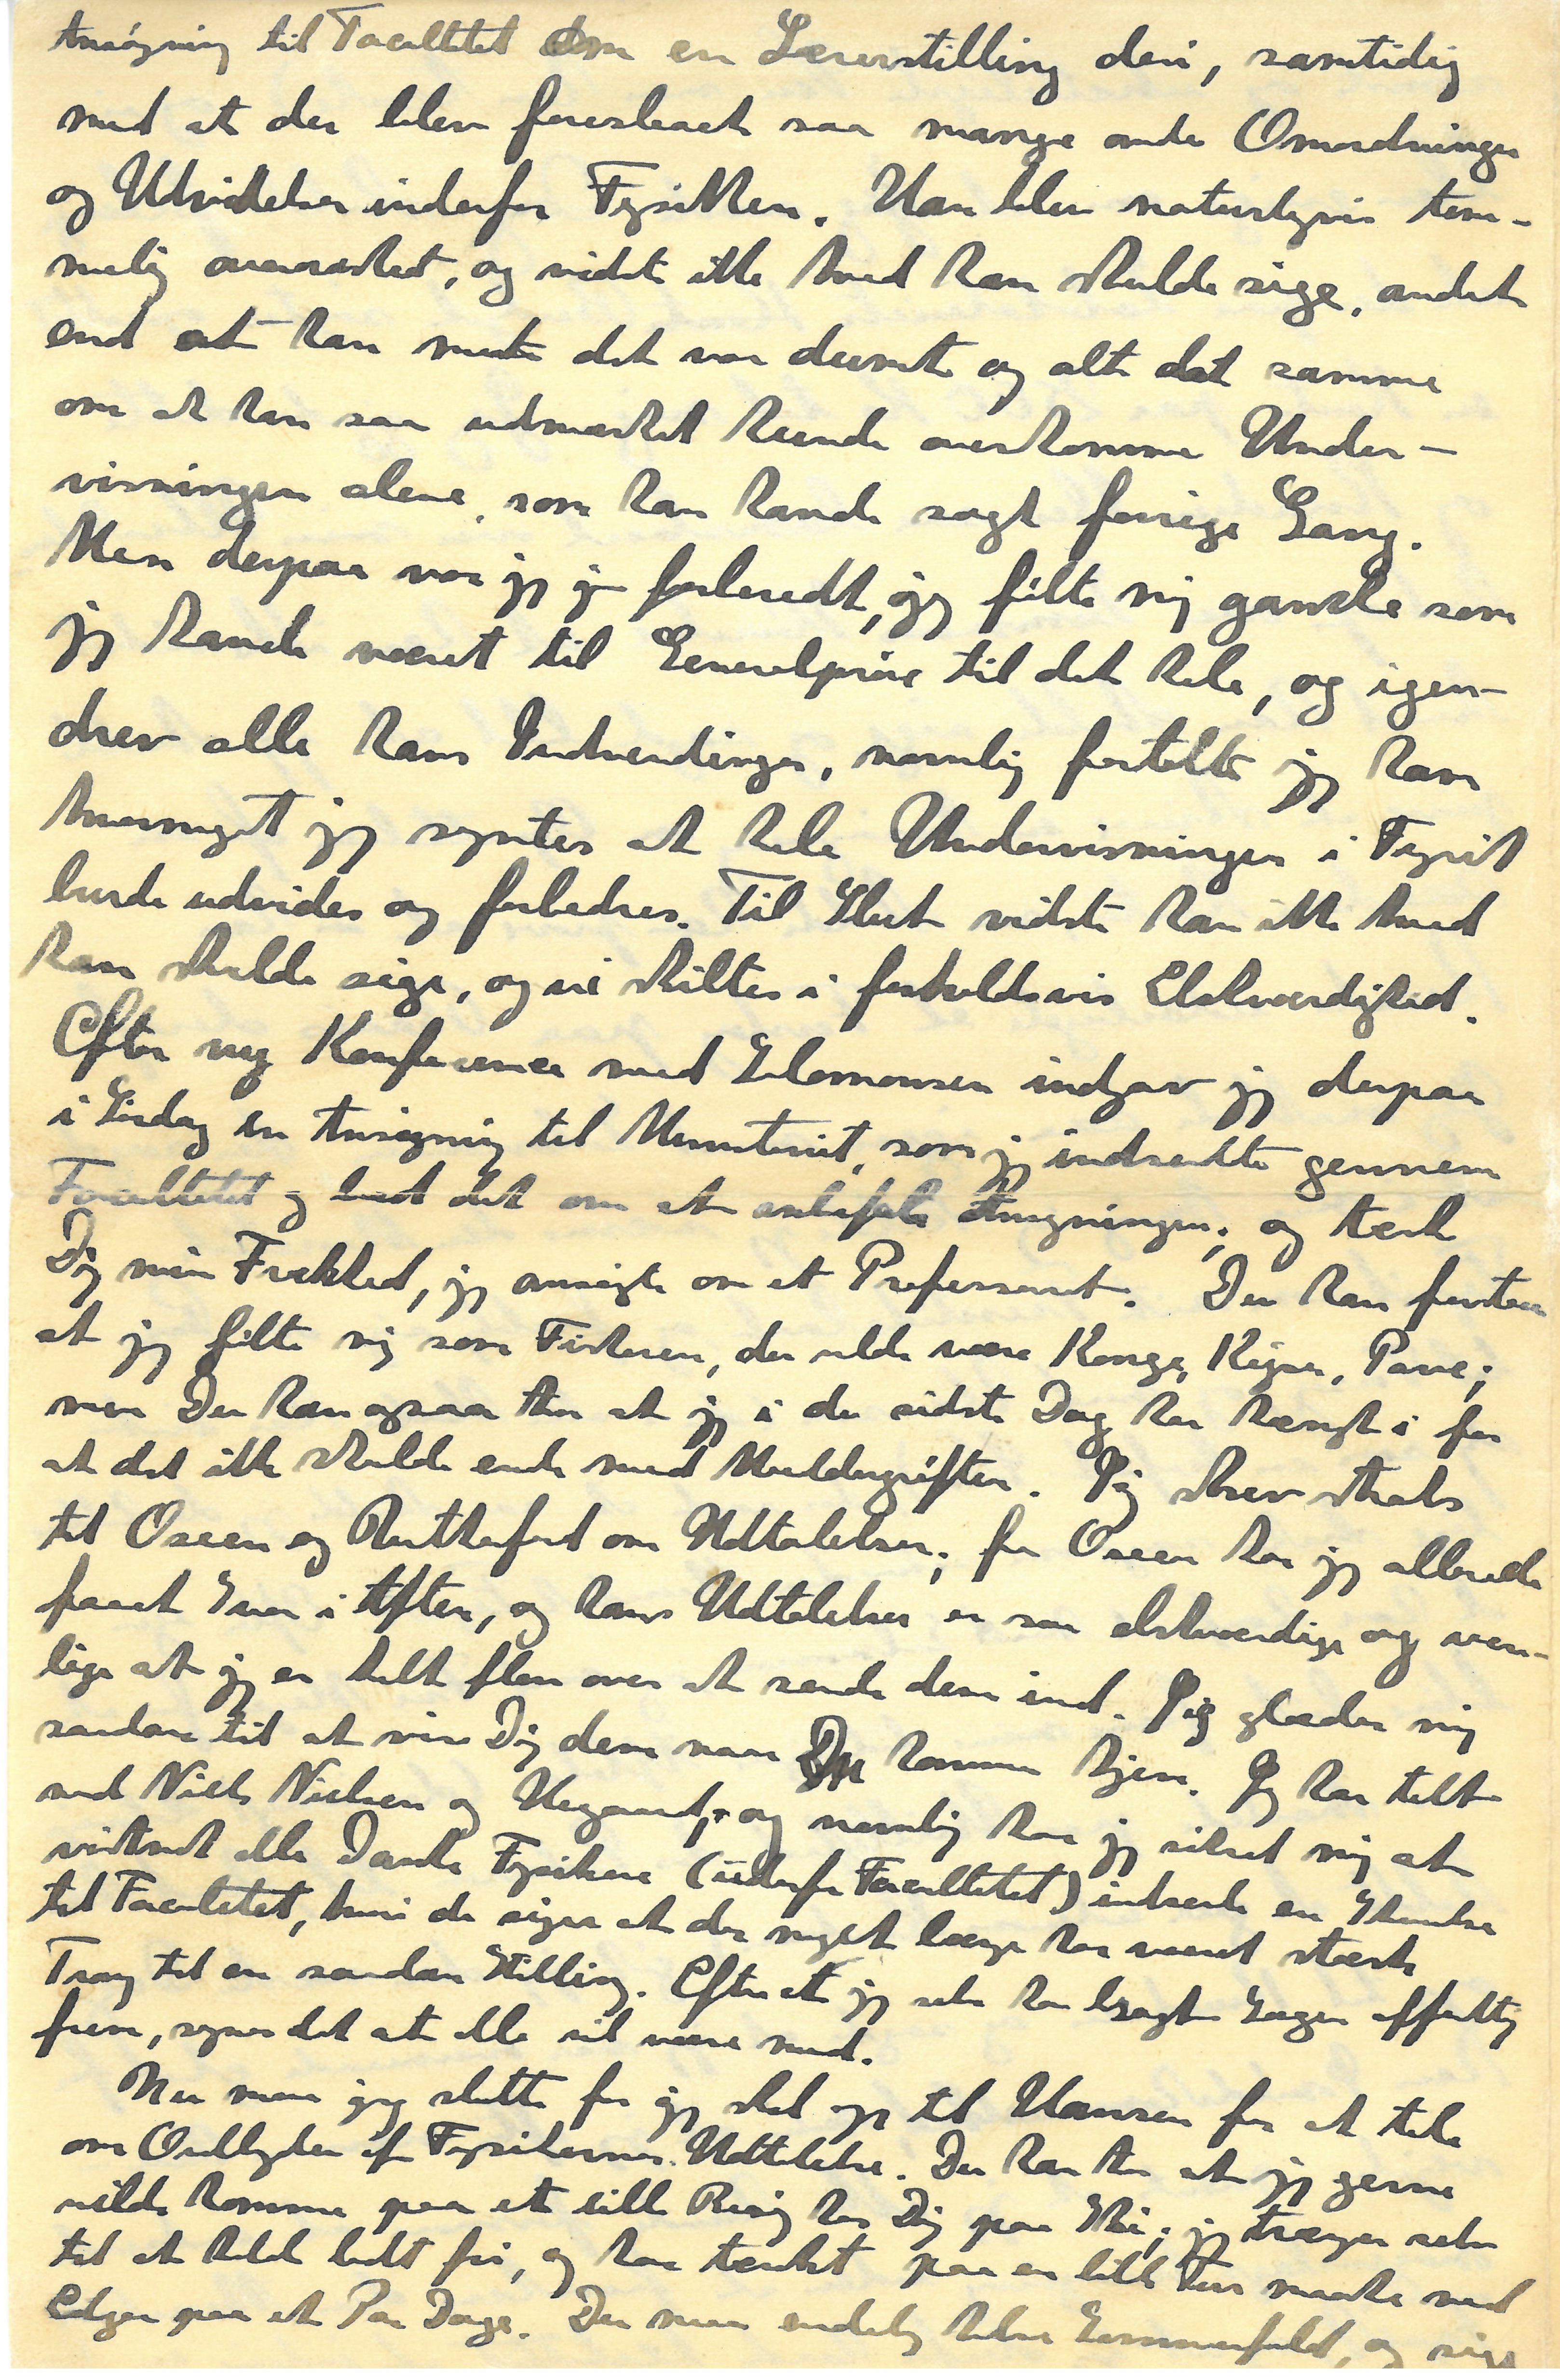 Ansøgning til Facultetet om en Lærerstilling deri, samtidig
med at der blev foreslaaet saa mange andre Omordninger
og Udvidelser indenfor Fysikken. Han blev naturligvis tem-
melig overrasket, og vidste ikke hvad han skulde sige, andet
end at han mente det var dumt og alt det samme
om at han saa udmærket kunde overkomme Under-
visningen alene, som han havde sagt forrige Gang.
Men derpaa var jeg jo forberedt, jeg følte mig ganske som
jeg havde været til Generalprøve til det hele, og igen-
drev alle hans Indvendinger, navnlig fortalte jeg ham
hvormeget jeg syntes at hele Undervisningen i Fysik
burde udvides og forbedres. Til Slut vidste han ikke hvad
han skulde sige, og vi skiltes i forholdsvis Elskværdighed.
Efter ny Konference med Salomonsen indgav jeg derpaa
i Lørdag en Ansøgning til Ministeriet, som jeg indsendte gennem
Facultetet og bad det om at anbefale Ansøgningen; og tænk
Dig min Frækhed, jeg ansøgte om et Professorat. Du kan forstaa
at jeg følte mig som Fiskeren, der vilde være Konge, Kejser, Pave;
men Du kan ogsaa tro at jeg i de sidste Dage har hængt i for
at det ikke skulde ende med Muddergrøften. Jeg skrev straks
til Oseen og Rutherford om Udtalelser; fra Oseen har jeg allerede
faaet Svar i Aften, og hans Udtalelser er saa elskværdige og ven-
lige at jeg er helt flov over at sende dem ind. Jeg glæder mig
saadan til at vise Dig dem naar Du kommer hjem. Jeg har talt
med Niels Nielsen og Heegaard, og navnlig har jeg sikret mig at
vistnok alle Danske Fysikere (udenfor Facultetet) indsende en Skrivelse
til Facultetet, hvori de siger at der meget længe har været stærk
Trang til en saadan Stilling. Efter at jeg selv har bragt Sagen offentlig
frem, synes det at alle vil være med.
Nu maa jeg slutte for jeg skal op til Hansen for at tale
om Ordlyden af Fysikernes Udtalelse. Du kan tro at jeg gerne
vilde komme paa et lille Besøg hos Dig paa Ski; jeg trænger selv
til at holde lidt fri, og har tænkt paa en lille Tur maaske med
Edgar paa et Par Dage. Du maa endelig hilse Sommerfeld, og sige